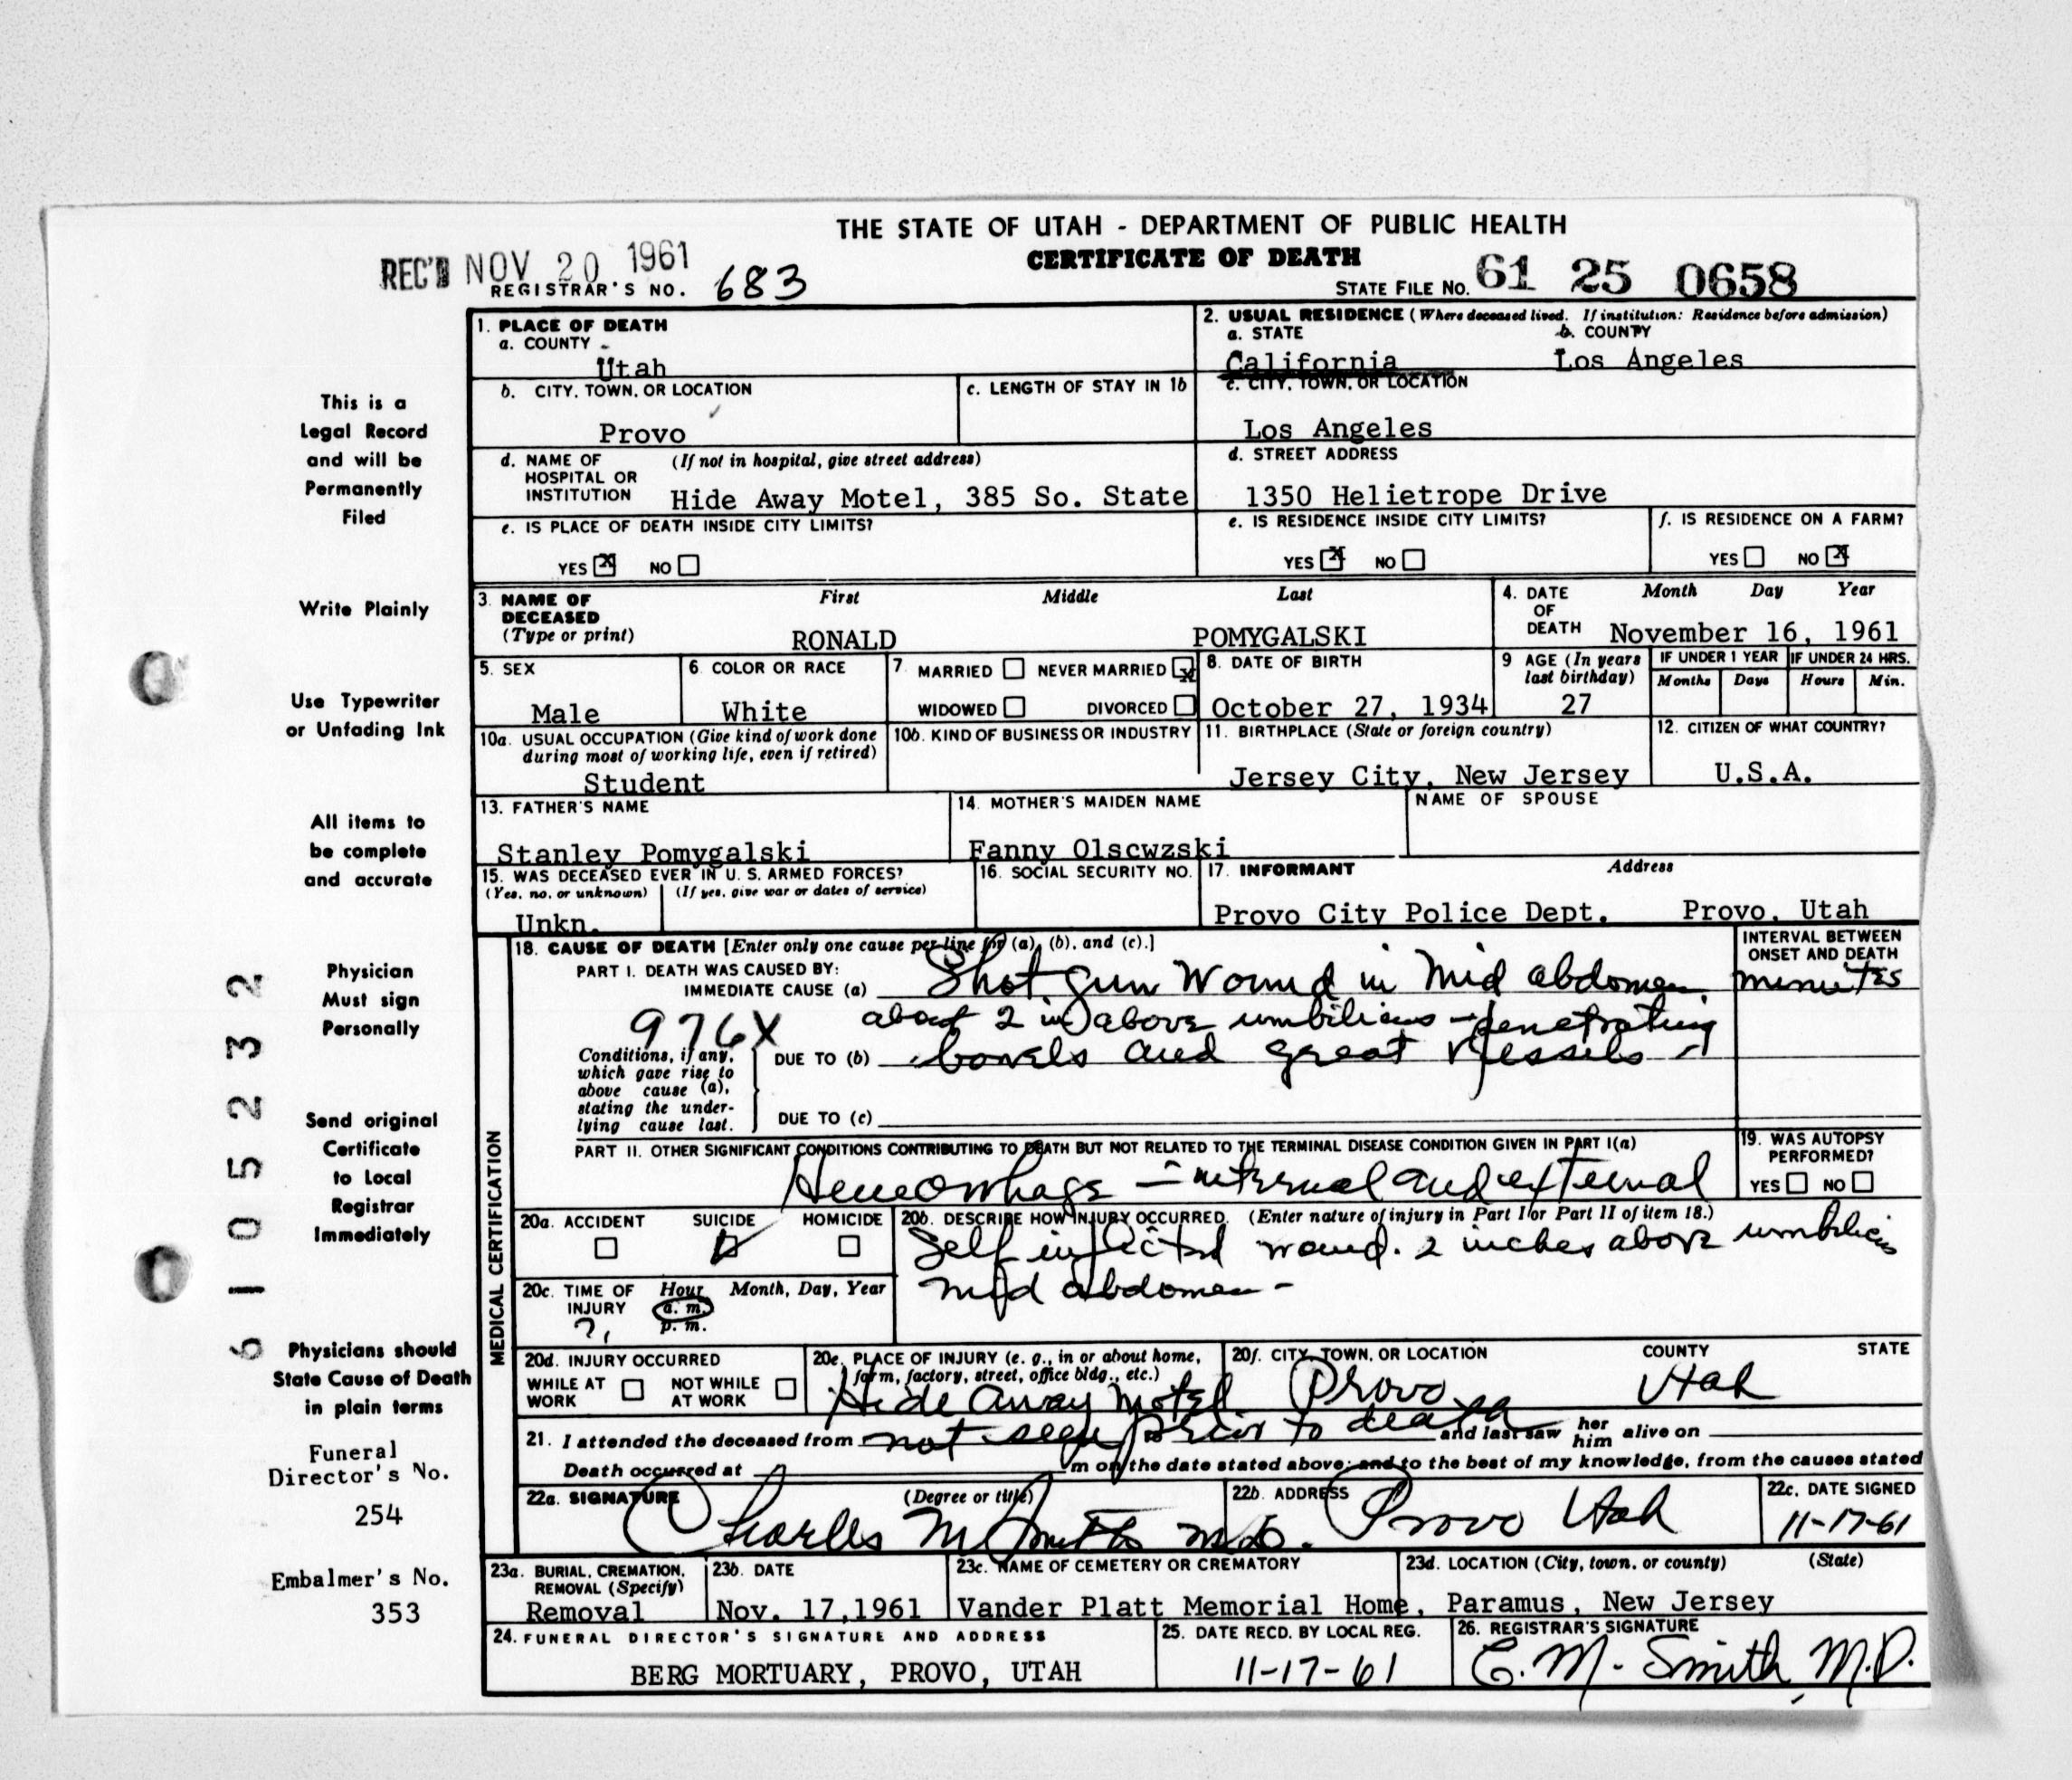 THE STATE OF UTAH - DEPARTMENT OF PUBLIC HEALTH
CERTIFICATE OF DEATH
REC'D NOV 20 1961
REGISTRAR'S NO. 683
STATE FILE NO. 61 25 0658
1. PLACE OF DEATH
a. COUNTY
Utah
2. USUAL RESIDENCE (Where deceased lived. If institution: Residence before admission)
a. STATE b. COUNTY
California Los Angeles
b. CITY, TOWN, OR LOCATION
Provo
c. LENGTH OF STAY IN 1b
c. CITY, TOWN, OR LOCATION
Los Angeles
d. NAME OF (If not in hospital, give street address)
HOSPITAL OR
INSTITUTION Hide Away Motel, 385 So. State
d. STREET ADDRESS
1350 Helietrope Drive
e. IS PLACE OF DEATH INSIDE CITY LIMITS?
YES X NO
e. IS RESIDENCE INSIDE CITY LIMITS?
YES X NO
f. IS RESIDENCE ON A FARM?
YES NO X
3. NAME OF DECEASED (Type or print)
First Middle Last
RONALD POMYGALSKI
4. DATE OF DEATH Month Day Year
November 16, 1961
5. SEX
Male
6. COLOR OR RACE
White
7. MARRIED NEVER MARRIED X
WIDOWED DIVORCED
8. DATE OF BIRTH
October 27, 1934
9 AGE (In years last birthday)
27
IF UNDER 1 YEAR IF UNDER 24 HRS.
Months Days Hours Min.
10a. USUAL OCCUPATION (Give kind of work done
during most of working life, even if retired)
Student
10b. KIND OF BUSINESS OR INDUSTRY
11. BIRTHPLACE (State or foreign country)
Jersey City, New Jersey
12. CITIZEN OF WHAT COUNTRY?
U.S.A.
13. FATHER'S NAME
Stanley Pomygalski
14. MOTHER'S MAIDEN NAME
Fanny Olscwzski
NAME OF SPOUSE
15. WAS DECEASED EVER IN U. S. ARMED FORCES?
(Yes, no, or unknown) (If yes, give war or dates of service)
Unkn.
16. SOCIAL SECURITY NO.
17. INFORMANT Address
Provo City Police Dept. Provo, Utah
MEDICAL CERTIFICATION
18. CAUSE OF DEATH [Enter only one cause per line for (a), (b), and (c).]
PART I. DEATH WAS CAUSED BY:
IMMEDIATE CAUSE (a) Shot gun Wound in Mid abdomen
about 2 in above umbilicus - penetrating
976X
Conditions, if any,
which gave rise to
above cause (a),
stating the under-
lying cause last.
DUE TO (b) bowels and great vessels -
DUE TO (c)
INTERVAL BETWEEN
ONSET AND DEATH
minutes
PART II. OTHER SIGNIFICANT CONDITIONS CONTRIBUTING TO DEATH BUT NOT RELATED TO THE TERMINAL DISEASE CONDITION GIVEN IN PART I(a)
Hemorrhage - internal and external
19. WAS AUTOPSY
PERFORMED?
YES NO
20a. ACCIDENT SUICIDE HOMICIDE
20b. DESCRIBE HOW INJURY OCCURRED. (Enter nature of injury in Part I or Part II of item 18.)
Self inflicted wound. 2 inches above umbilicus
mid abdomen -
20c. TIME OF INJURY Hour Month, Day, Year
a. m.
p. m.
?
20d. INJURY OCCURRED
WHILE AT WORK NOT WHILE AT WORK
20e. PLACE OF INJURY (e. g., in or about home,
farm, factory, street, office bldg., etc.)
Hide Away Motel
20f. CITY, TOWN, OR LOCATION COUNTY STATE
Provo Utah
21. I attended the deceased from not seen prior to death and last saw her him alive on
Death occurred at m on the date stated above; and to the best of my knowledge, from the causes stated
22a. SIGNATURE (Degree or title)
Charles M Smith M.D.
22b. ADDRESS
Provo Utah
22c. DATE SIGNED
11-17-61
23a. BURIAL, CREMATION,
REMOVAL (Specify)
Removal
23b. DATE
Nov. 17, 1961
23c. NAME OF CEMETERY OR CREMATORY
Vander Platt Memorial Home,
23d. LOCATION (City, town, or county) (State)
Paramus, New Jersey
24. FUNERAL DIRECTOR'S SIGNATURE AND ADDRESS
BERG MORTUARY, PROVO, UTAH
25. DATE RECD. BY LOCAL REG.
11-17-61
26. REGISTRAR'S SIGNATURE
E. M. Smith, M.D.
This is a
Legal Record
and will be
Permanently
Filed
Write Plainly
Use Typewriter
or Unfading Ink
All items to
be complete
and accurate
Physician
Must sign
Personally
Send original
Certificate
to Local
Registrar
Immediately
Physicians should
State Cause of Death
in plain terms
Funeral
Director's No.
254
Embalmer's No.
353
61052232